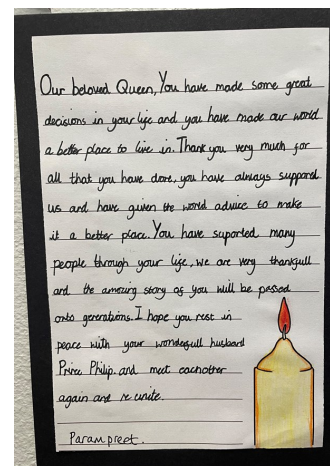 Our beloved Queen, You have made some great
decisions in your life and you have made our world
a better place to live in. Thank you very much for
all that you have done, you have always supported
us and have given the world advice to make
it a better place. You have suported many
people through your life, we are very thankfull
and the amazing story of you will be passed
onto generations. I hope you rest in
peace with your wonderfull husband
Prince Philip. and meet eachother
again and re unite.
Parampreet.